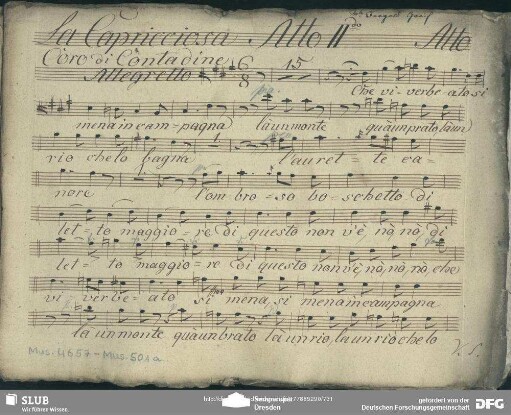 La Capricciosa Atto II do Alto
Coro di Contadine
Allegretto 6 8 15
Che vi-verbe-ato si
mena in cam-pagna là un monte quà un prato là un
rio che lo bagna l'auret-te ca=
nore l'om-bro=so bo=schetto di
let=to maggio=re di questo non v'è, nò, nò, di
let=to maggio=re di questo non v'è, nò, nò, nò, che
vi verbe=ato si mena, si mena in campagna
la un monte quà un brato là un rio, la un rio che lo
V. S.
Mus. 4657-Mus. 501a
SLUB
wir führen Wissen.
Dresden
gefördert von der
Deutschen Forschungsgemeinschaft
DFG